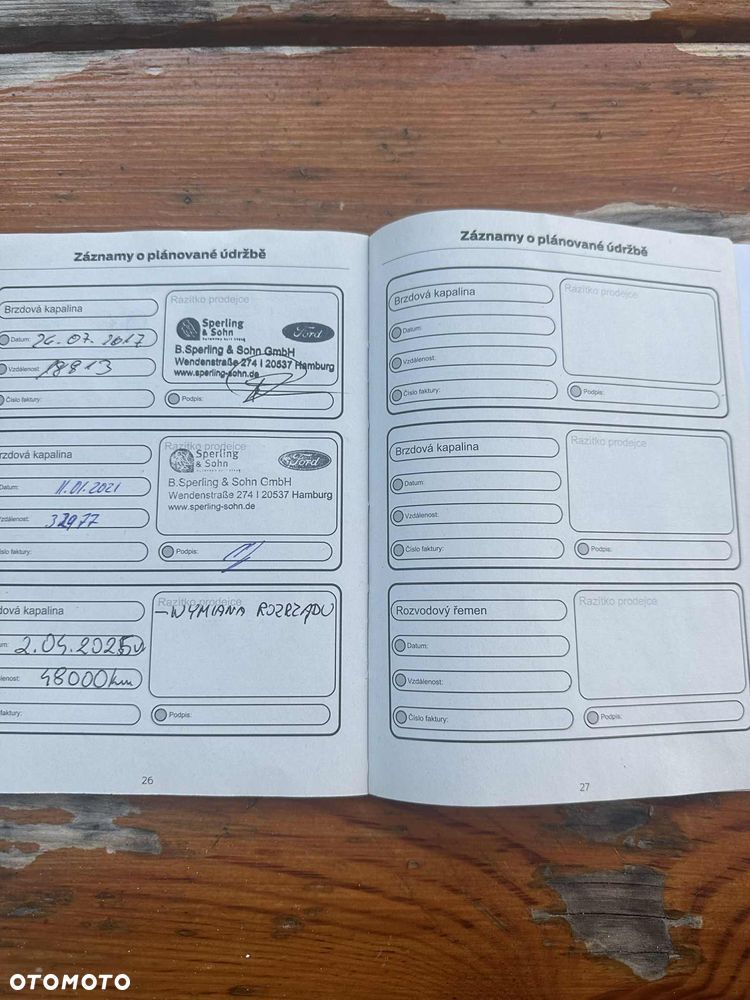 Záznamy o plánované údržbě
Brzdová kapalina
Datum: 26.07.2017
Vzdálenost: 18813
Číslo faktury:
Razítko prodejce
Sperling
& Sohn
Ford
B.Sperling & Sohn GmbH
Wendenstraße 274 I 20537 Hamburg
www.sperling-sohn.de
Podpis:
rzdová kapalina
Datum: 11.01.2021
Vzdálenost: 32977
íslo faktury:
Razítko prodejce
Sperling
& Sohn
Ford
B.Sperling & Sohn GmbH
Wendenstraße 274 I 20537 Hamburg
www.sperling-sohn.de
Podpis:
dová kapalina
um: 2.04.2025
lenost: 48000km
faktury:
Razítko prodejce
- WYMIANA ROZRZĄDU
Podpis:
26
Záznamy o plánované údržbě
Brzdová kapalina
Datum:
Vzdálenost:
Číslo faktury:
Razítko prodejce
Podpis:
Brzdová kapalina
Datum:
Vzdálenost:
Číslo faktury:
Razítko prodejce
Podpis:
Rozvodový řemen
Datum:
Vzdálenost:
Číslo faktury:
Razítko prodejce
Podpis:
27
OTOMOTO